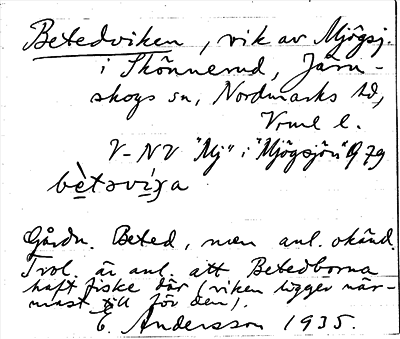 Betedviken, vik av Mjögsj.
i Skönnerud, Järn-
skogs sn, Nordmarks hd,
Vrml l.
V-NV "Mj" i "Mjögsjön" 979
bètəvíʒa
Gårdn. Beted, men anl. okänd.
Trol. är anl. att Betedborna
haft fiske där (viken ligger när-
mast till för dem).
E. Andersson 1935.